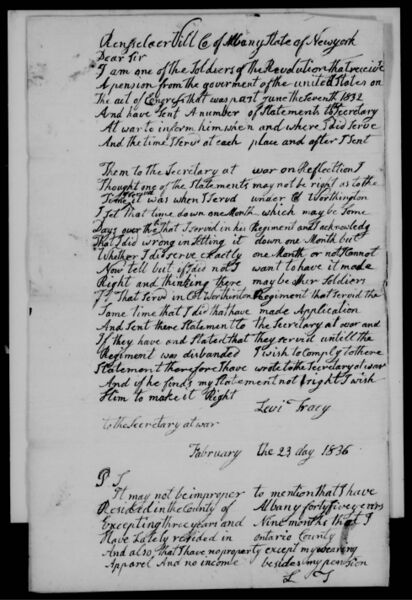 Rensselaer Vill C. of Albany State of Newyork
Dear Sir
I am one of the Soldiers of the Revolution that receive
A pension from the goverment of the united States on
The act of Congress that was past June the Seventh 1832
And have Sent A number of Statements to Secretary
At war to inform him when and where I did Serve
And the time I Serv at each place and after I Sent
Them to the Secretary at war on Reflection I
Thought one of the Statements may not be right as to the
Time I Served it was when I Servd under C Worthington
I Set that time down one Month which may be Some
Days over the that I Servd in his Regiment and I acknowledg
That I did wrong in Setting it down one Month but
Whether I did Serve exactly one Month or not I Cannot
Now tell but if I did not I want to have it made
Right and thinking there may be other Soldiers
If that Servd in Col Worthington Regiment that Servd the
Same time that I did that have made Application
And Sent there Statement to the Secretary at war and
If they have and Stated that they servid untill the
Regiment was disbanded I wish to Comply to there
Statement therefore I have wrote to the Secretary at war
And if he finds my Statement not right I wish
Him to make it Right
Levi Tracy
to the Secretary at war
Fabruary the 23 day 1836
P S
It may not be improper to mention that I have
Resided in the County of Albany forty five years
Excepting three years and Nine months that I
Have Lately resided in Ontario County
And also, that I have no property except my wearing
Apparel And no income besides my pension
L T